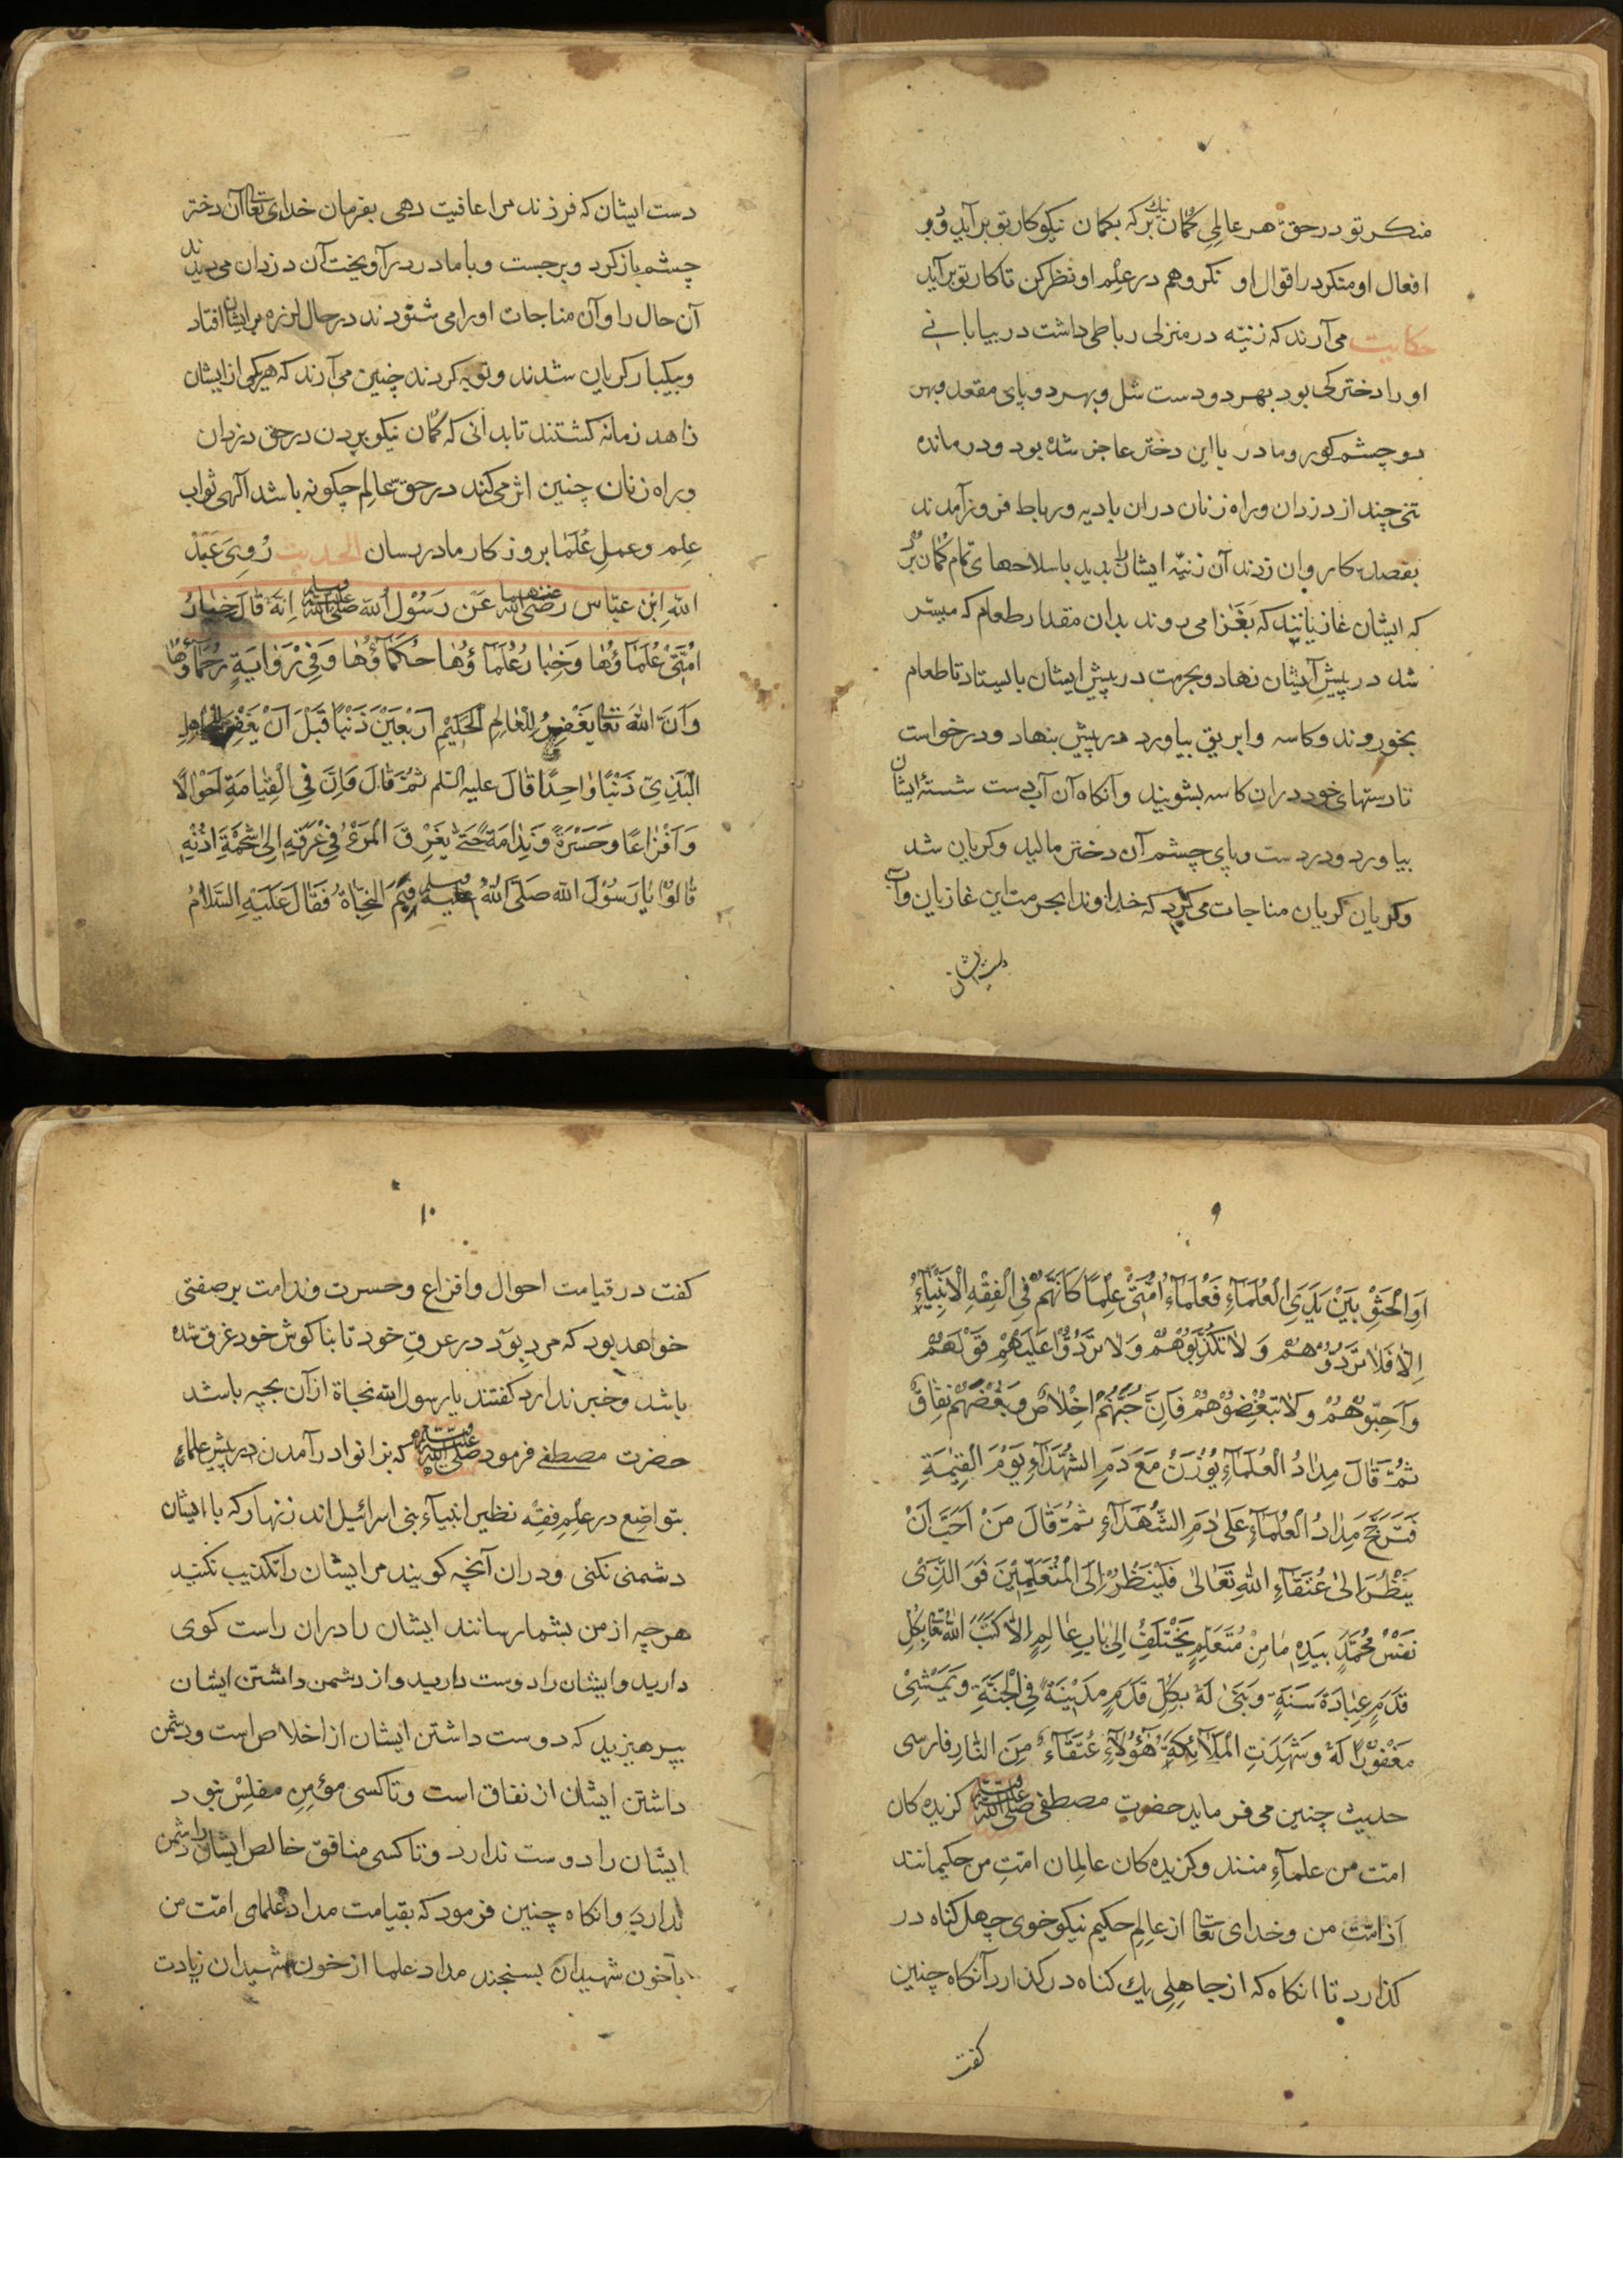 منكر تو در حق هر عالمی گمان نیک بر که بگمان نیکو کار تو برآید و در
افعال او منکر در اقوال او نگر و هم در علم او نظر کن تا کار تو برآید
حکایت می آرند که زنیه در منزلی رباطی داشت در بیابانی
او را دخترکی بود بهر دو دست شل و بهر دو پای مقعد و بهر
دو چشم کور و مادر با این دختر عاجز شده بود و درمانده
تنی چند از دزدان و راه زنان در ان بادیه و رباط فروز آمدند
بقصد کاروان زدند آن زنیه ایشان را بدید باسلاحهای تمام گمان برد
که ایشان غازیانند که بغزا می روند بدان مقدار طعام که میسر
شد در پیش آیشان نهاد و بحرمت در پیش ایشان بایستاد تا طعام
بخوروند و کاسه و ابریق بیاورد در پیش بنهاد و درخواست
تا دستهای خود در ان کاسه بشویند و آنکاه آن آب دست شستۀ ایشان
بیاورد و در دست و پای چشم آن دختر مالید و کریان شد
و کریان کریان مناجات می کرد که خداوندا بحرمت این غازیان و آب
دست ایشان
دست ایشان که فرزند مرا عافیت دهی بفرمان خدای تعالی آن دختر
چشم باز کرد و برجست و با مادر در آویخت آن دزدان می دیدند
آن حال را و آن مناجات او را می شنودند در حال لرزه بر ایشان افتاد
و بیکبار کریان شدند و توبه کردند چنین می آرند که هر یکی از ایشان
زاهد زمانه کشتند تا بدانی که گمان نیکو بردن در حق دزدان
و راه زنان چنین اثر می کند در حق عالم چکونه باشد آلهی ثواب
علم و عمل علما بروزکار ما در رسان الحدیث رُوِیَ عَبْدُ
اللهِ ابْنِ عبّاس رضی الله عنهما عَن رَسُوْلِ الله صلی الله علیه وسلم اِنَّهُ قَالَ خِيَارُ
اُمَّتِیْ عُلَمَآؤُهَا وَخِیَارُ عُلَمَآؤُهَا حُکَمَآؤُهَا وَفِیْ رَوَایَةٍ رُحَمَآؤُهَا
وَاَنَّ اللهَ تعالی یَغْفِرُ لِلْعَالِمِ الْحَکِیْمِ اَرْبَعِیْنَ ذَنْبًا قَبْلَ اَنْ یَغْفِرَ لِلْجَاهِلِ
الْبَذِیِّ ذَنْبًا وَاحِدًا قَالَ علیه السلم ثُمَّ قَالَ فَاِنَّ فِی الْقِیَامَةِ اَحْوَالًا
وَاَفْزَاعًا وَحَسْرَةً وَنِدَامَةً حَتّٰی یَغْرِقَ الْمَرْءُ فِیْ عَرَقِهٖ اِلٰی شَحْمَةِ اُذُنَیْهِ
قَالُوْا یَا رَسُوْلَ الله صَلَّی اللهُ علیه وسلم فِیْمَ النَّجَاةُ فَقَالَ عَلَیْهِ السَّلَامُ
۹
اَوِ الْجَثْوِ بَیْنَ یَدَیِ الْعُلَمَآءِ فَعُلَمَآءُ اُمَّتِیْ عِلْمًا کَاَنَّهُمْ فِی الْفِقْهِ الْاَنْبِیَآءُ
اِلَّا فَلَا تَرُدُّوْهُمْ وَلَا تُکَذِّبُوْهُمْ وَلَا تَرُدُّوْا عَلَیْهِمْ قَوْلَهُمْ
وَاَحِبُّوْهُمْ وَلَا تُبْغِضُوْهُمْ فَاِنَّ حُبَّهُمْ اِخْلَاصٌ وَبُغْضَهُمْ نِفَاقٌ
ثُمَّ قَالَ مِدَادُ الْعُلَمَآءِ یُوْزَنُ مَعَ دَمِ الشُّهَدَآءِ یَوْمَ الْقِیٰمَةِ
فَتَرَجَّحَ مِدَادُ الْعُلَمَآءِ عَلٰی دَمِ الشُّهَدَآءِ ثُمَّ قَالَ مَنْ اَحَبَّ اَنْ
یَنْظُرَ اِلٰی عُتَقَآءِ اللهِ تَعَالٰی فَلْیَنْظُرْ اِلَی الْمُتَعَلِّمِیْنَ فَوَ الَّذِیْ
نَفْسُ مُحَمَّدٍ بِیَدِهٖ مَا مِنْ مُتَعَلِّمٍ یَخْتَلِفُ اِلٰی بَابِ عَالِمٍ اِلَّا کَتَبَ اللهُ تعالی بِکُلِّ
قَدَمٍ عِبَادَةَ سَنَةٍ وَبَنٰی لَهٗ بِکُلِّ قَدَمٍ مَدِیْنَةً فِی الْجَنَّةِ وَیَمْشِیْ
مَغْفُوْرًا لَهٗ وَشَهِدَتِ الْمَلَآئِکَةُ هٰؤُلَآءِ عُتَقَآءُ مِنَ النَّارِ فارسی
حدیث چنین می فرماید حضرت مصطفی صلی الله علیه وسلم کزیده کان
امت من علمآء منند و کزیده کان عالمان امت من حکیمانند
از امّت من و خدای تعالی از عالم حکیم نیکو خوی چهل کناه در
کذارد تا انکاه که از جاهلی یك کناه در کذارد آنکاه چنین
کفت
۱۰
کفت در قیامت احوال و افزاع و حسرت و ندامت بر صفتی
خواهد بود که مرد بوَد در عرق خود تا بناکوش خود غرق شده
باشد و خبر ندارد کفتند یا رسول الله نجاة از آن بچه باشد
حضرت مصطفی فرمود صلی الله علیه وسلم که بزانوا در آمدن در پیش علمآء
بتواضع در علم فقه نظیر انبیآء بنی اسرائیل اند زنهار که با ایشان
دشمنی نکنی و در ان آنچه کویند مر ایشان را تکذیب نکنید
هر چه از من بشما رسانند ایشان را در ان راست کوی
دارید و ایشان را دوست دارید و از دشمن داشتن ایشان
بپرهیزید که دوست داشتن ایشان از اخلاص است و دشمن
داشتن ایشان از نفاق است و تا کسی مؤمن مفلس نبود
ایشان را دوست ندارد و تا کسی منافق خالص ایشان را دشمن
ندارد و انکاه چنین فرمود که بقیامت مداد علمای امّت من
باخون شهیدان بسنجند مداد علما از خون شهیدان زیادت